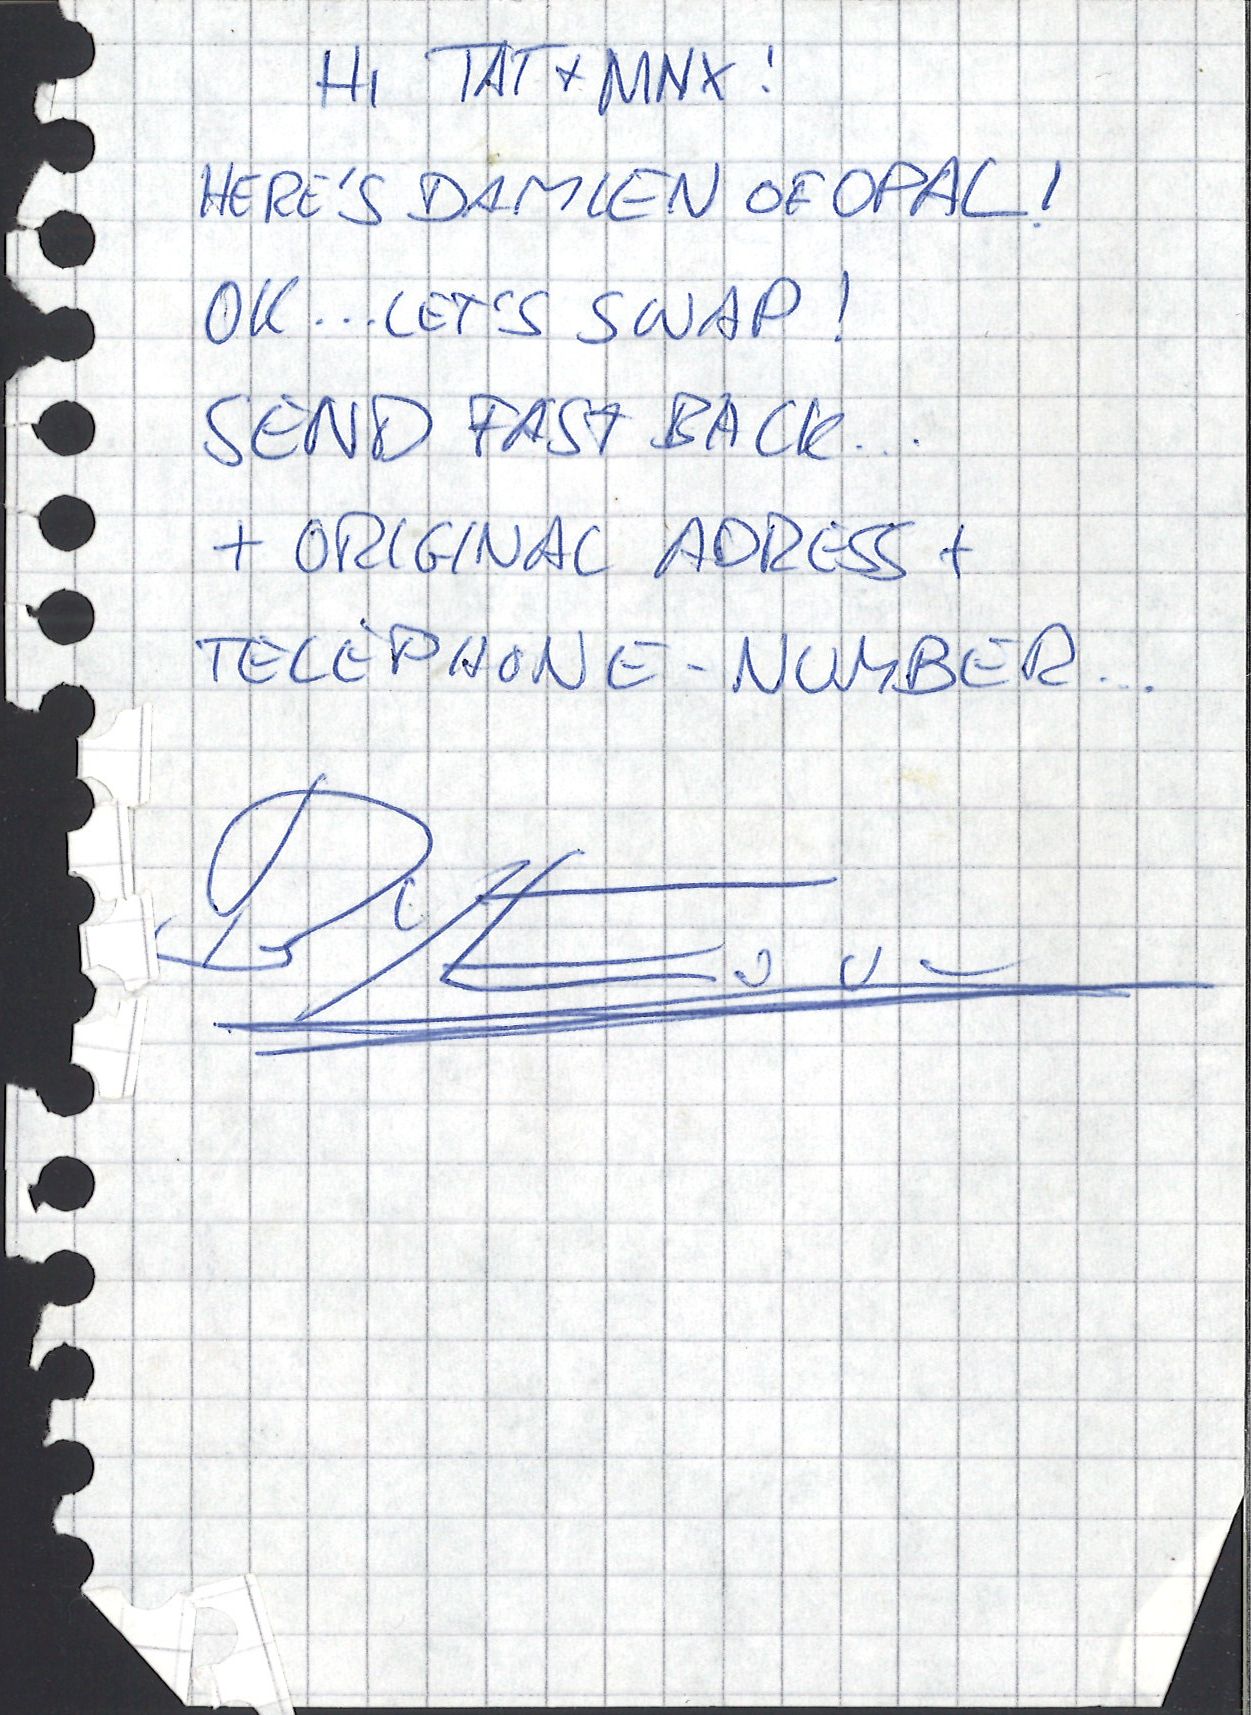 HI TAT + MNX!
HERE'S DAMIEN OF OPAL!
OK...LET'S SWAP!
SEND FAST BACK...
+ ORIGINAL ADRESS +
TELÉPHONE-NUMBER...